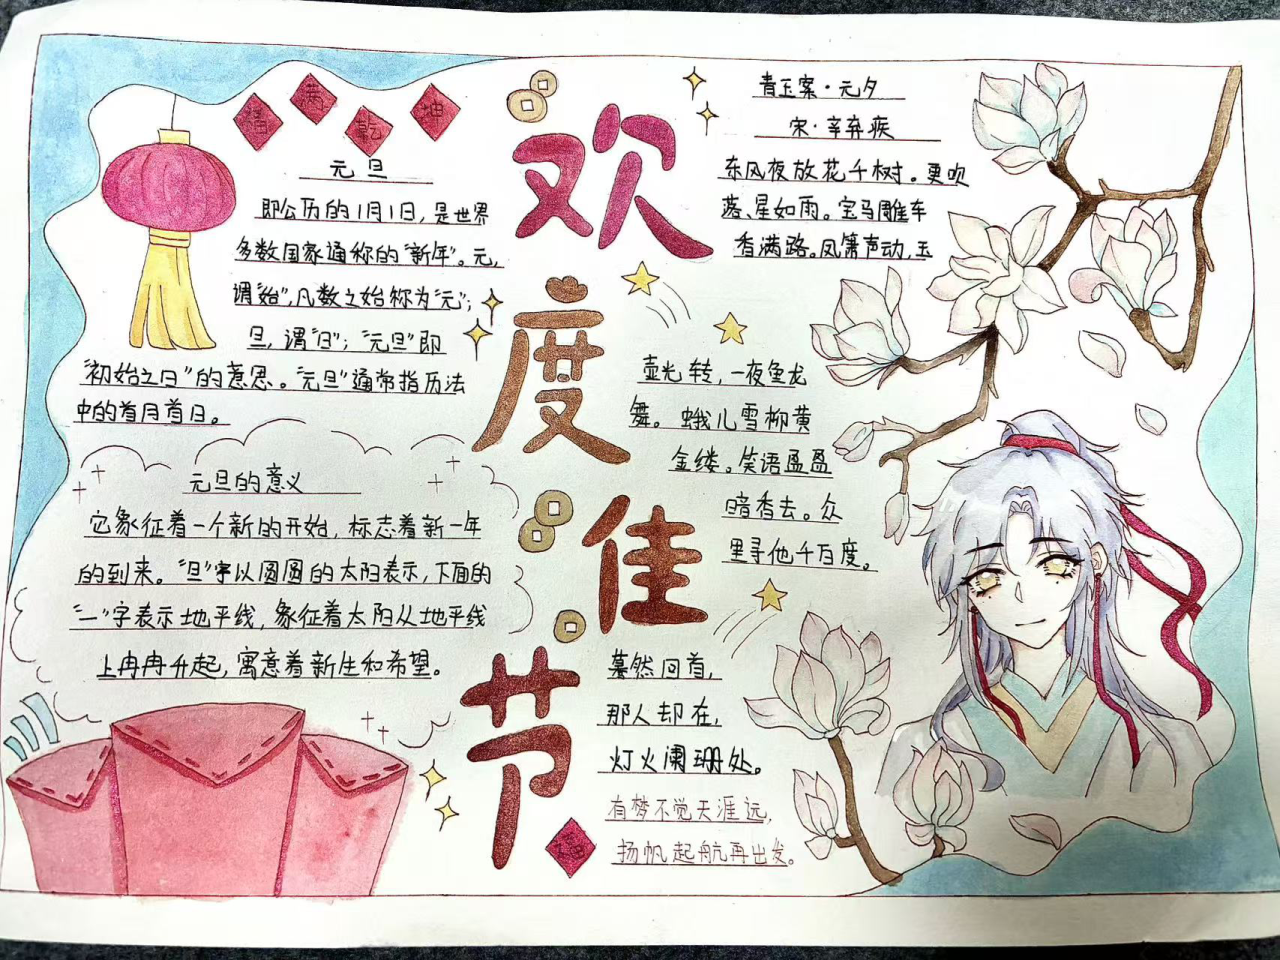 福
满
乾
坤
元旦
即公历的1月1日，是世界
多数国家通称的"新年"。元，
谓"始"，凡数之始称为"元"；
旦，谓"日"；"元旦"即
"初始之日"的意思。"元旦"通常指历法
中的首月首日。
元旦的意义
它象征着一个新的开始，标志着新一年
的到来。"旦"字以圆圆的太阳表示，下面的
"一"字表示地平线，象征着太阳从地平线
上冉冉升起，寓意着新生和希望。
欢
度
佳
节
青玉案·元夕
宋·辛弃疾
东风夜放花千树。更吹
落、星如雨。宝马雕车
香满路。凤箫声动，玉
壶光转，一夜鱼龙
舞。蛾儿雪柳黄
金缕。笑语盈盈
暗香去。众
里寻他千百度。
蓦然回首，
那人却在，
灯火阑珊处。
有梦不觉天涯远，
扬帆起航再出发。